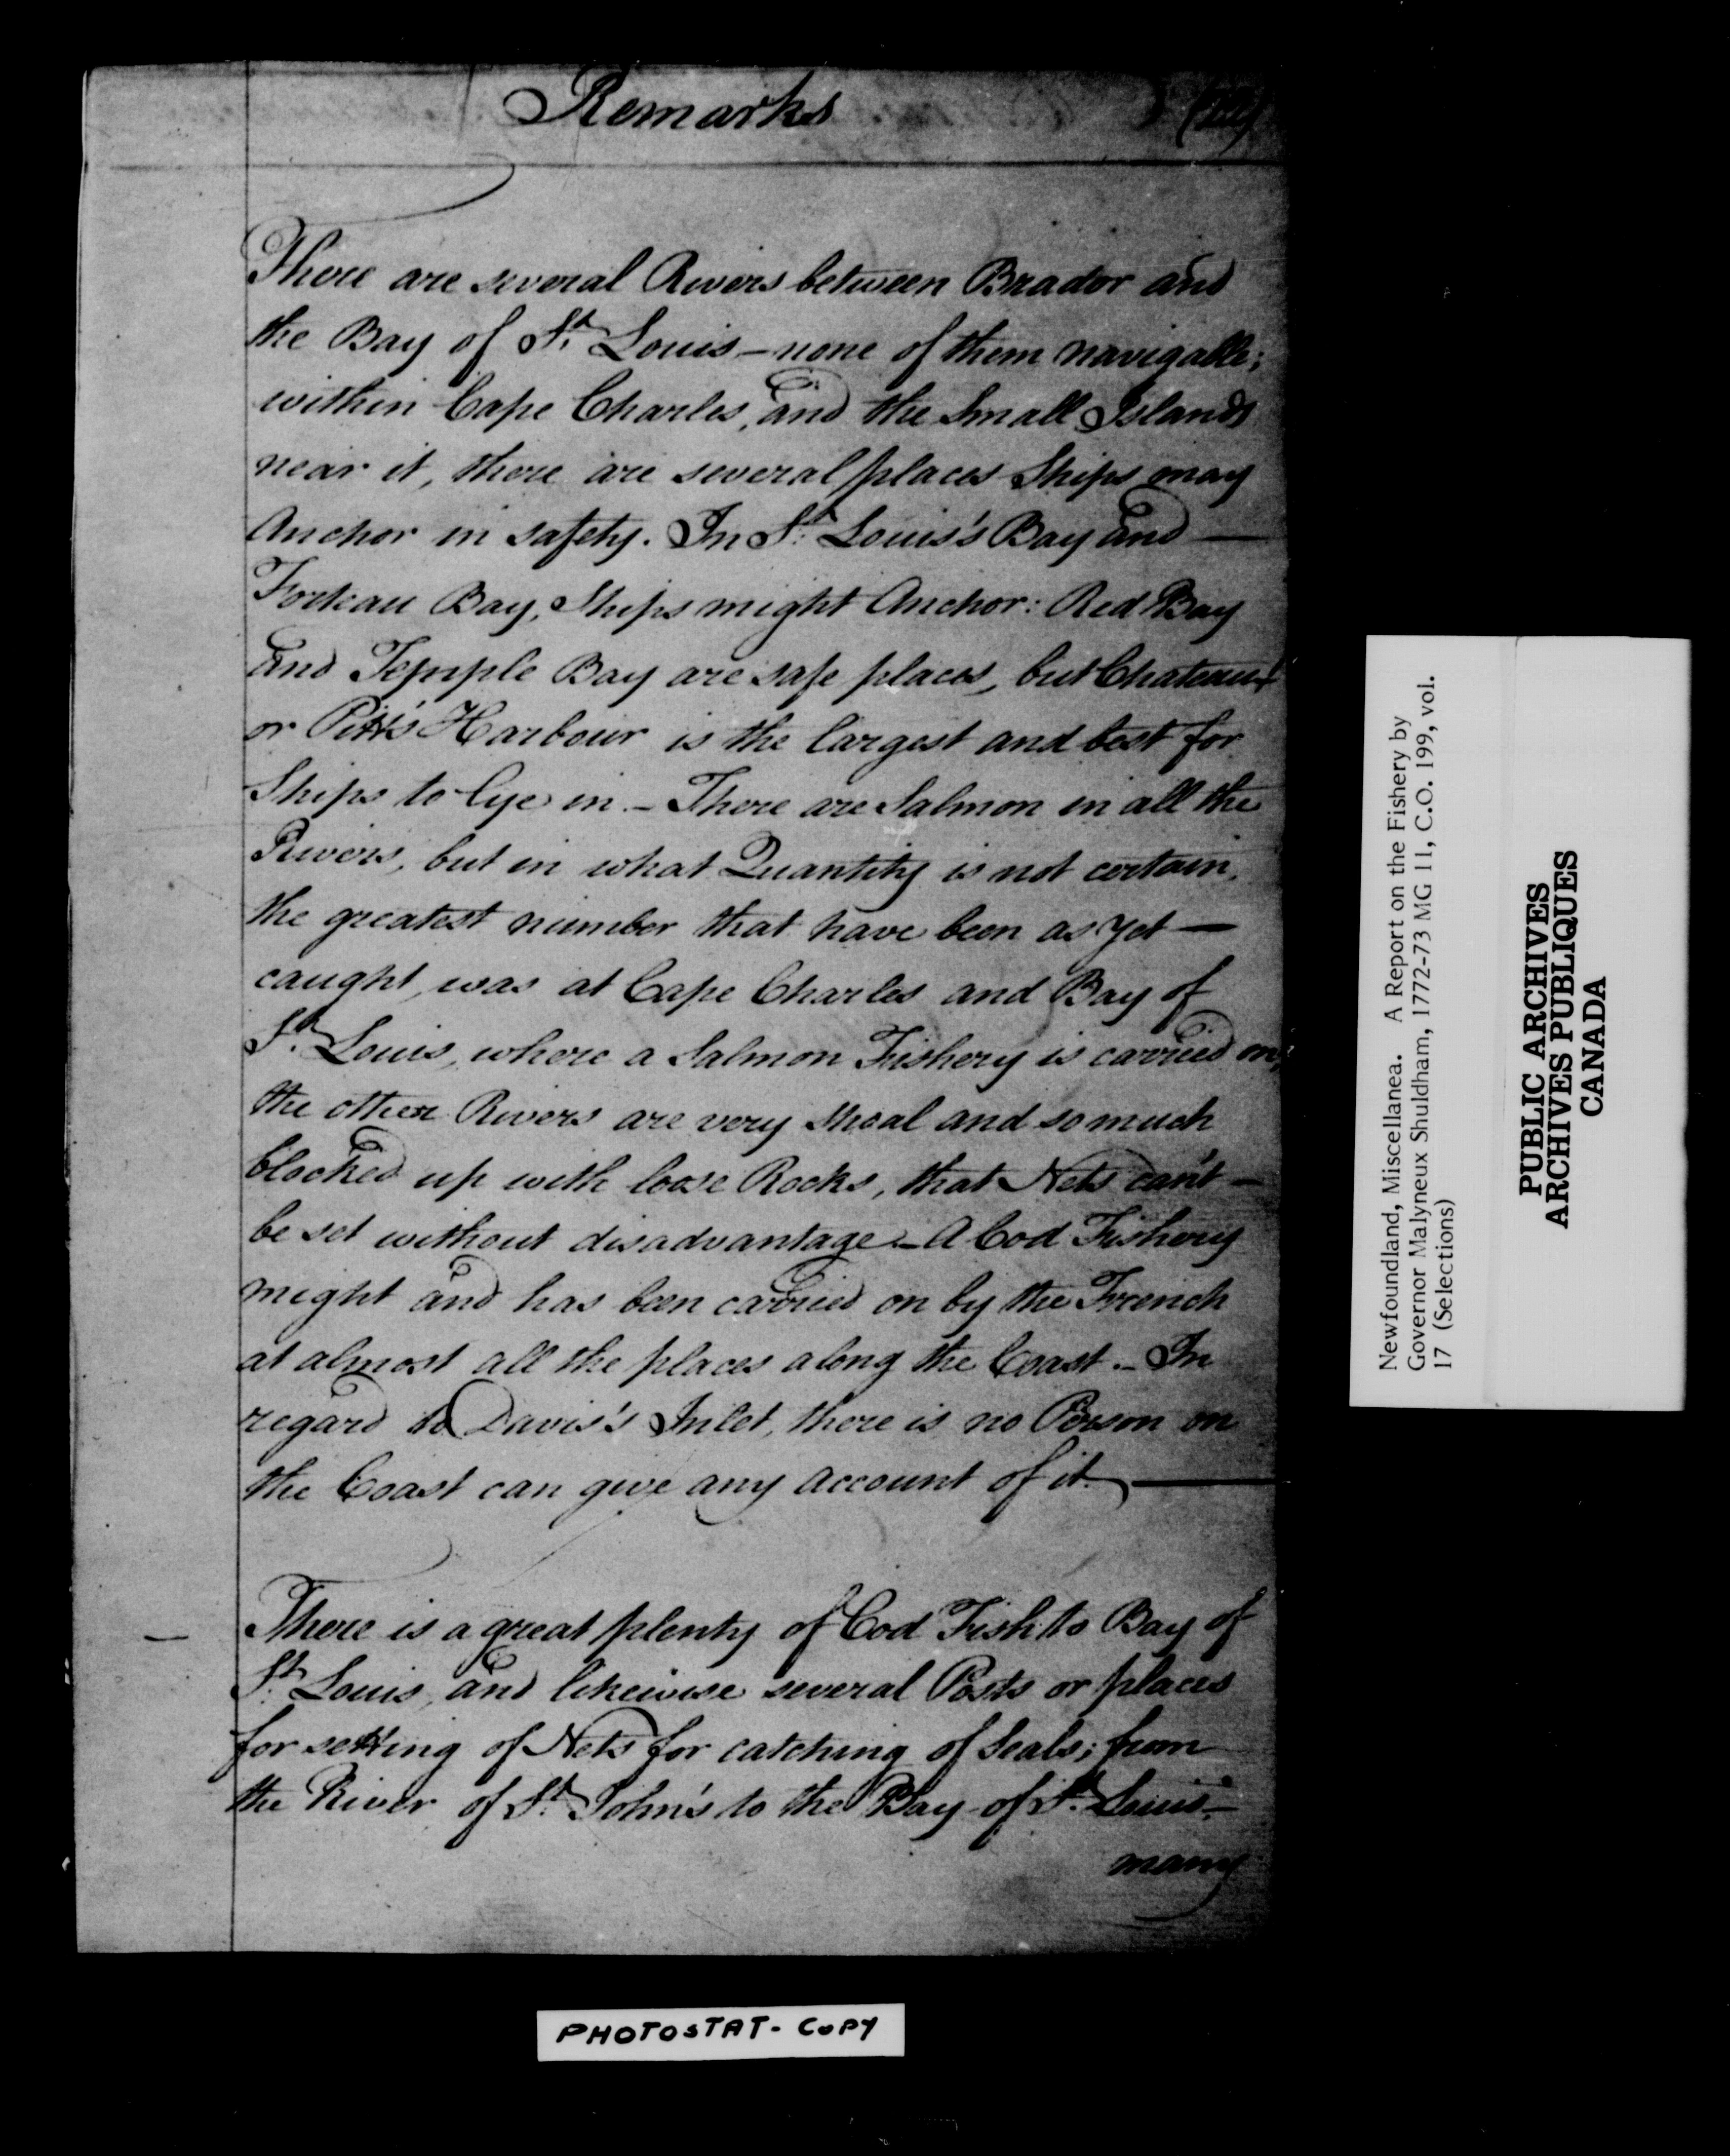 Remarks
There are several Rivers between Brador and
the Bay of St. Louis – none of them navigable;
within Cape Charles, and the Small Islands
near it, there are several places Ships may
Anchor in safety. In St. Louis's Bay and —
Forteau Bay, Ships might Anchor: Red Bay
and Temple Bay are safe places, but Chateaux
or Pitt's Harbour is the largest and best for
Ships to lye in. – There are Salmon in all the
Rivers, but in what Quantity is not certain,
the greatest number that have been as yet —
caught, was at Cape Charles and Bay of
St. Louis, where a Salmon Fishery is carried on,
the other Rivers are very shoal and so much
blocked up with loose Rocks, that Nets can't –
be set without disadvantage – A Cod Fishery
might and has been carried on by the French
at almost all the places along the Coast. – In
regard to Davis's Inlet, there is no Person on
the Coast can give any account of it. —
— There is a great plenty of Cod Fish to Bay of
St. Louis, and likewise several Posts or places
for setting of Nets for catching of Seals; from
the River of St. John's to the Bay of St. Louis –
many
PHOTOSTAT - COPY
Newfoundland, Miscellanea. A Report on the Fishery by
Governor Malyneux Shuldham, 1772-73 MG 11, C.O. 199, vol.
17 (Selections)
PUBLIC ARCHIVES
ARCHIVES PUBLIQUES
CANADA